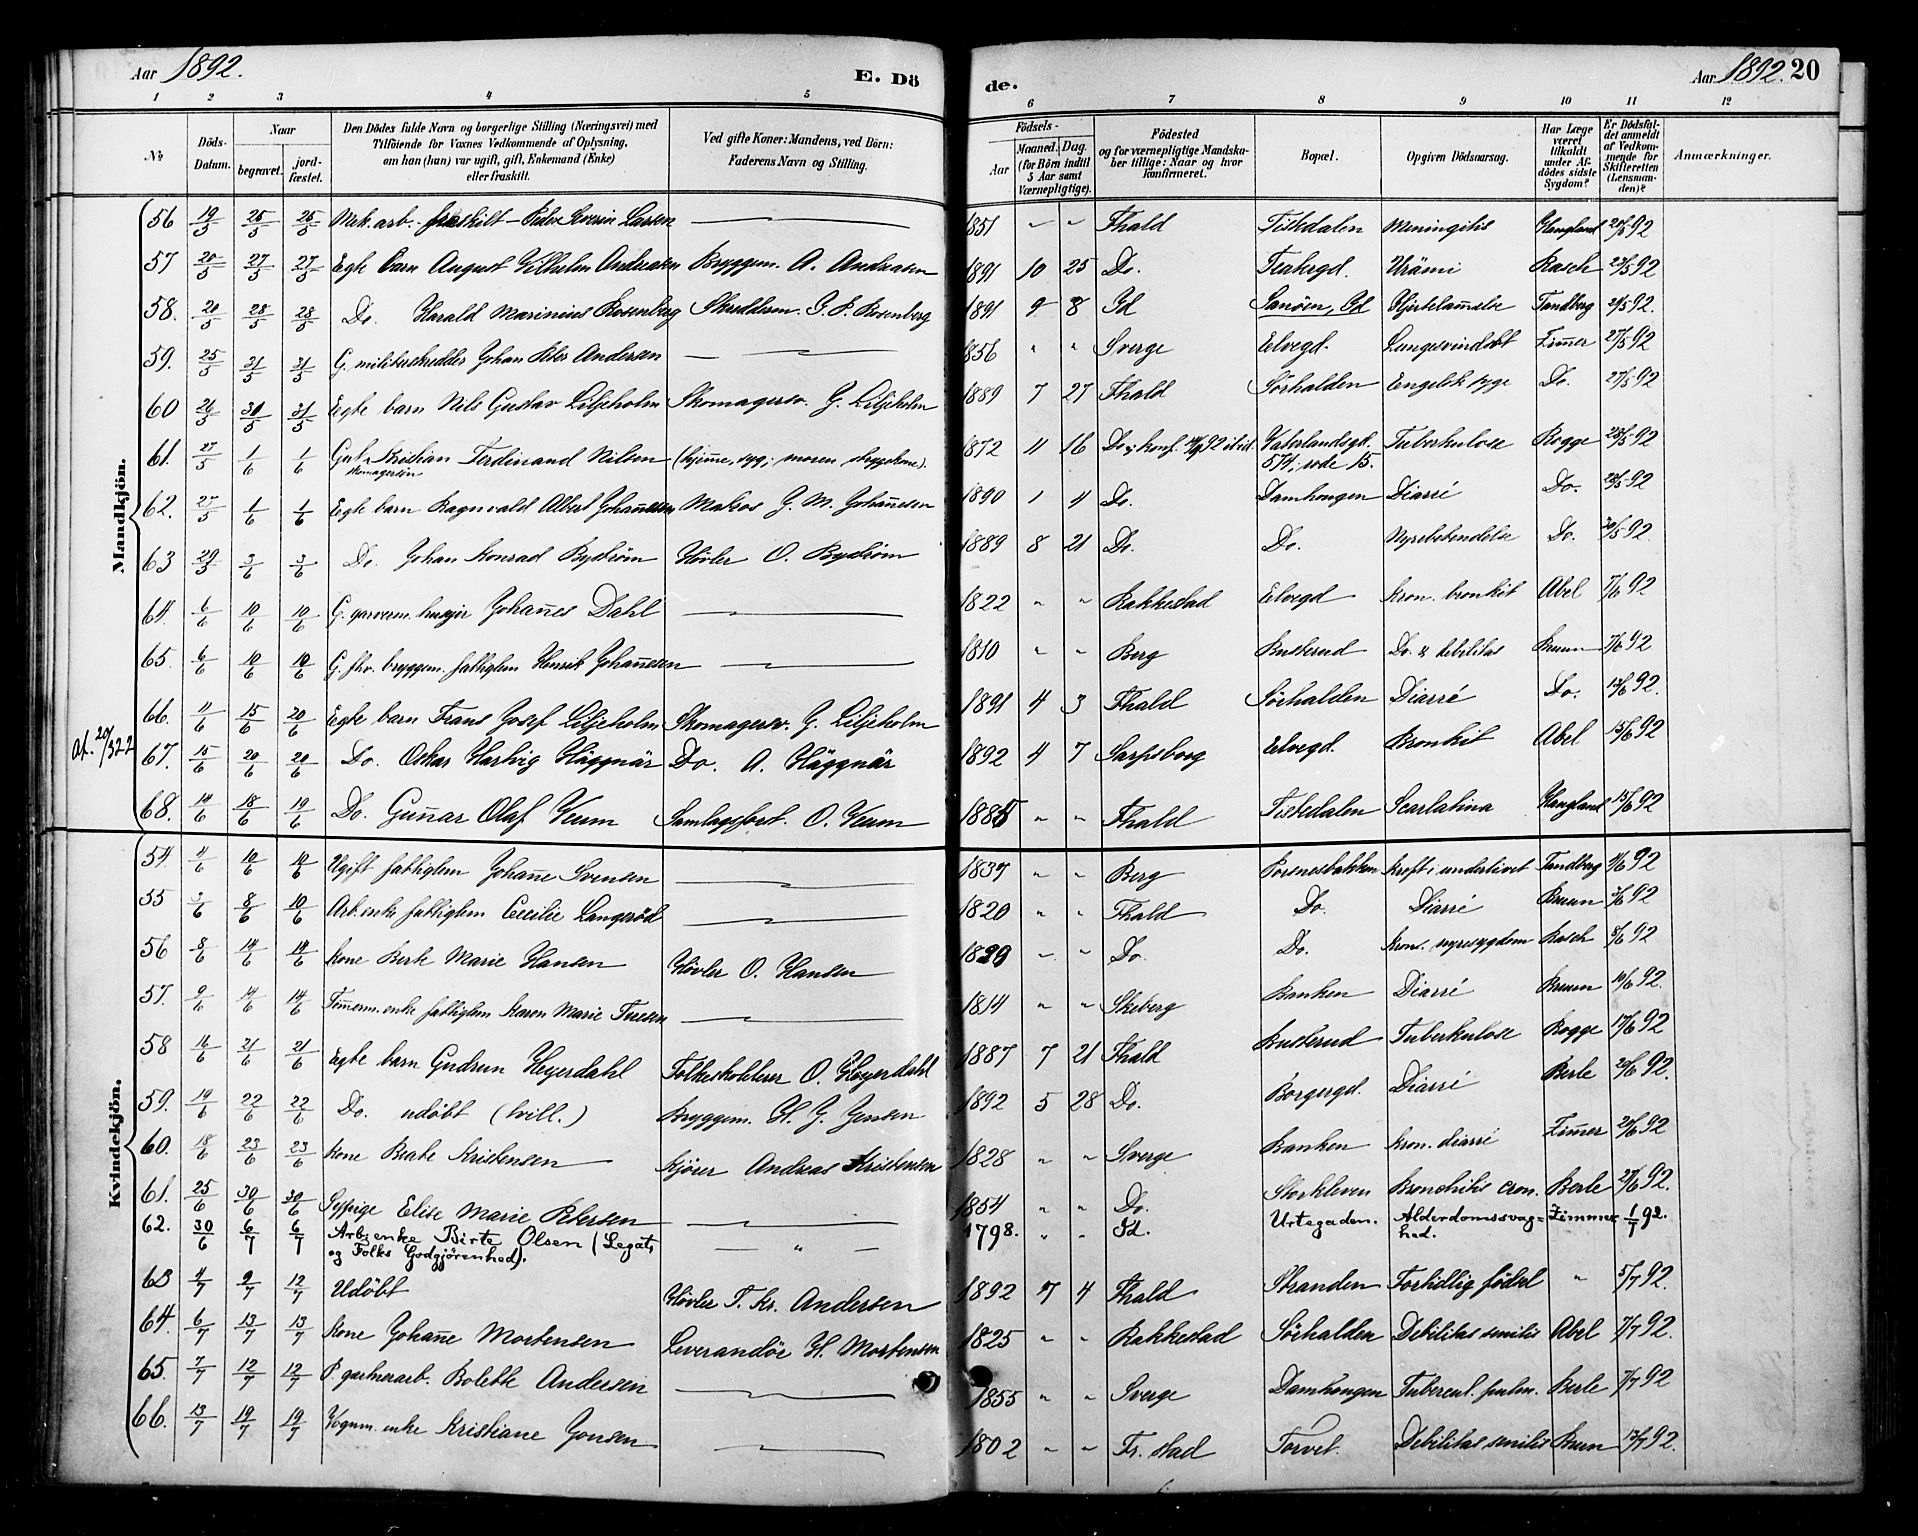 Aar 1892.
E. Döde.
Aar 1892. 20
1 2 3 4 5 6 7 8 9 10 11 12
Nr
Döds-Datum.
Naar
begravet.
jordfæstet.
Den Dödes fulde Navn og borgerlige Stilling (Næringsvei) med Tilföiende for Voxnes Vedkommende af Oplysning, om han (hun) var ugift, gift, Enkemand (Enke) eller fraskilt.
Ved gifte Koner: Mandens, ved Börn: Faderens Navn og Stilling.
Födsels-
Aar
Maaned. Dag.
(for Börn indtil 5 Aar samt Værnepligtige).
Födested og for værnepligtige Mandskaber tillige: Naar og hvor konfirmeret.
Bopæl.
Opgiven Dödsaarsag.
Har Læge været tilkaldt under Afdödes sidste Sygdom?
Er Dödsfaldet anmeldt af Vedkommende for Skifteretten (Lensmanden)?
Anmærkninger.
Mandkjön.
56 19/5 25/5 25/5 Mek. arb. fraskilt – Peder Severin Larsen — 1851 " " Fhald Tistedalen Meningitis Haugland 20/5 92
57 20/5 27/5 27/5 Egte barn August Vilhelm Andreasen Bryggem. A. Andreasen 1891 10 25 Do. Teatergd. Urämi Rasch 23/5 92
58. 20/5 28/5 28/5 Do. Harald Marinius Rosenberg Skreddersv. G. P. Rosenberg 1891 9 8 Id Sanöen, Id Hjertelamelse Tandberg 24/5 92
59. 25/5 31/5 31/5 G. militærskredder Johan Peter Andersen — 1856 " " Sverge Elvegd. Lungesvindsot Zimer 27/5 92
60 26/5 30/5 31/5 Egte barn Nils Gustav Liljeholm Skomagersv. G. Liljeholm 1889 7 27 Fhald Sörhalden Engelsk syge Do. 27/5 92
61. 27/5 1/6 1/6 Gut Kristian Ferdinand Nilsen (hjemme, syg; moren 1872 11 16 Do; konf. 92 ibid. Vaterlandsgd. 574; rode 15. Tuberkulose Bogge 28/5 92
62. 27/5 1/6 1/6 Egte barn Ragnvald Albert Johannesen Matros G. M. Johannesen 1890 1 4 Do. Damhougen Diarré Do. 28/5 92
63 29/5 3/6 3/6 Do. Johan Konrad Byström Hövler O. Byström 1889 8 21 Do. Do. Nyrebetendelse Do. 30/5 92
64. 6/6 10/6 10/6 G. garverm. husejer Johanes Dahl — 1822 " " Rakkestad Elvegd Kron. bronkit Abel 7/6 92
65. 6/6 10/6 10/6 G. fhv. bryggem. fattiglem Henrik Johannesen — 1810 " " Berg Busterud Do. & debilitas Bruun 7/6 92
66. 11/6 15/6 20/6 Egte barn Frans Josef Liljeholm Skomagersv. G. Liljeholm 1891 4 3 Fhald Sörhalden Diarré Do. 12/6 92.
67. 15/6 20/6 20/6 Do. Oskar Hartvig Häggnär Do. A. Häggnär 1892 4 7 Sarpsborg Elvegd. Bronkit Abel 15/6 92
68. 14/6 18/6 19/6 Do. Gunnar Olaf Veum Samlagsbest. O. Veum 1885 " " Fhald Tistedalen Scarlatina Haugland 15/6 92
Kvindekjön.
54. 4/6 10/6 10/6 Ugift fattiglem Johane Svensen — 1837 " " Berg Porsnesbakken Kreft i underlivet Tandberg 4/6 92
55 3/6 8/6 10/6 Arb. enke fattiglem Cecilie Langeröd — 1820 " " Fhald Do. Diarré Bruun 3/6 92
56 8/6 14/6 14/6 Kone Berte Marie Hansen Hövler O. Hansen 1829 " " Do. Do. Kron. nyresygdom Rasch 8/6 92
57. 9/6 14/6 14/6 Timerm. enke fattiglem Karen Marie — 1814 " " Skeberg Banken Diarré Bruun 10/6 92.
58 16/6 21/6 21/6 Egte barn Gudrun Heyerdahl Folkeskolelærer O. Heyerdahl 1887 7 21 Fhald Busterud Tuberkulose Bogge 17/6 92
59. 19/6 22/6 22/6 Do. udöbt (tvill.) Bryggem. H. J. Jensen 1892 5 28 Do. Borgergd. Diarré Berle 20/6 92.
60. 18/6 23/6 23/6 Kone Beate Kristensen Kjörer Andreas Kristensen 1828 " " Sverge Banken Kron. diarré Zimer 20/6 92
61. 25/6 30/6 30/6 Sypige Elise Marie Petersen — 1854 " " Do. Storkleven Bronchitis cron. Berle 27/6 92.
62. 30/6 6/7 6/7 Arbs enke Birte Olsen (Legat, og Folks Godgjörenhed). — " — 1798. " " Id. Urtegaden. Alderdomssvaghed. Zimmer 1/7 92.
63 4/7 9/7 12/7 Udöbt Hövler T. Kr. Andersen 1892 7 4 Fhald Stranden Fortidlig födsel " 5/7 92.
64. 6/7 13/7 13/7 Kone Johane Mortensen Leverandör H. Mortensen 1825 " " Rakkestad Sörhalden Debilitas senilis Abel 7/7 92.
65. 7/7 12/7 12/7 P. gartnerarb. Bolette Andersen — 1855 " " Sverge Damhougen Tubercul. pulm. Berle 7/7 92
66. 13/7 19/7 19/7 Vognm. enke Kristiane Jonsen — 1802 " " Fr. stad Torvet. Debilitas senilis Bruun 13/7 92.